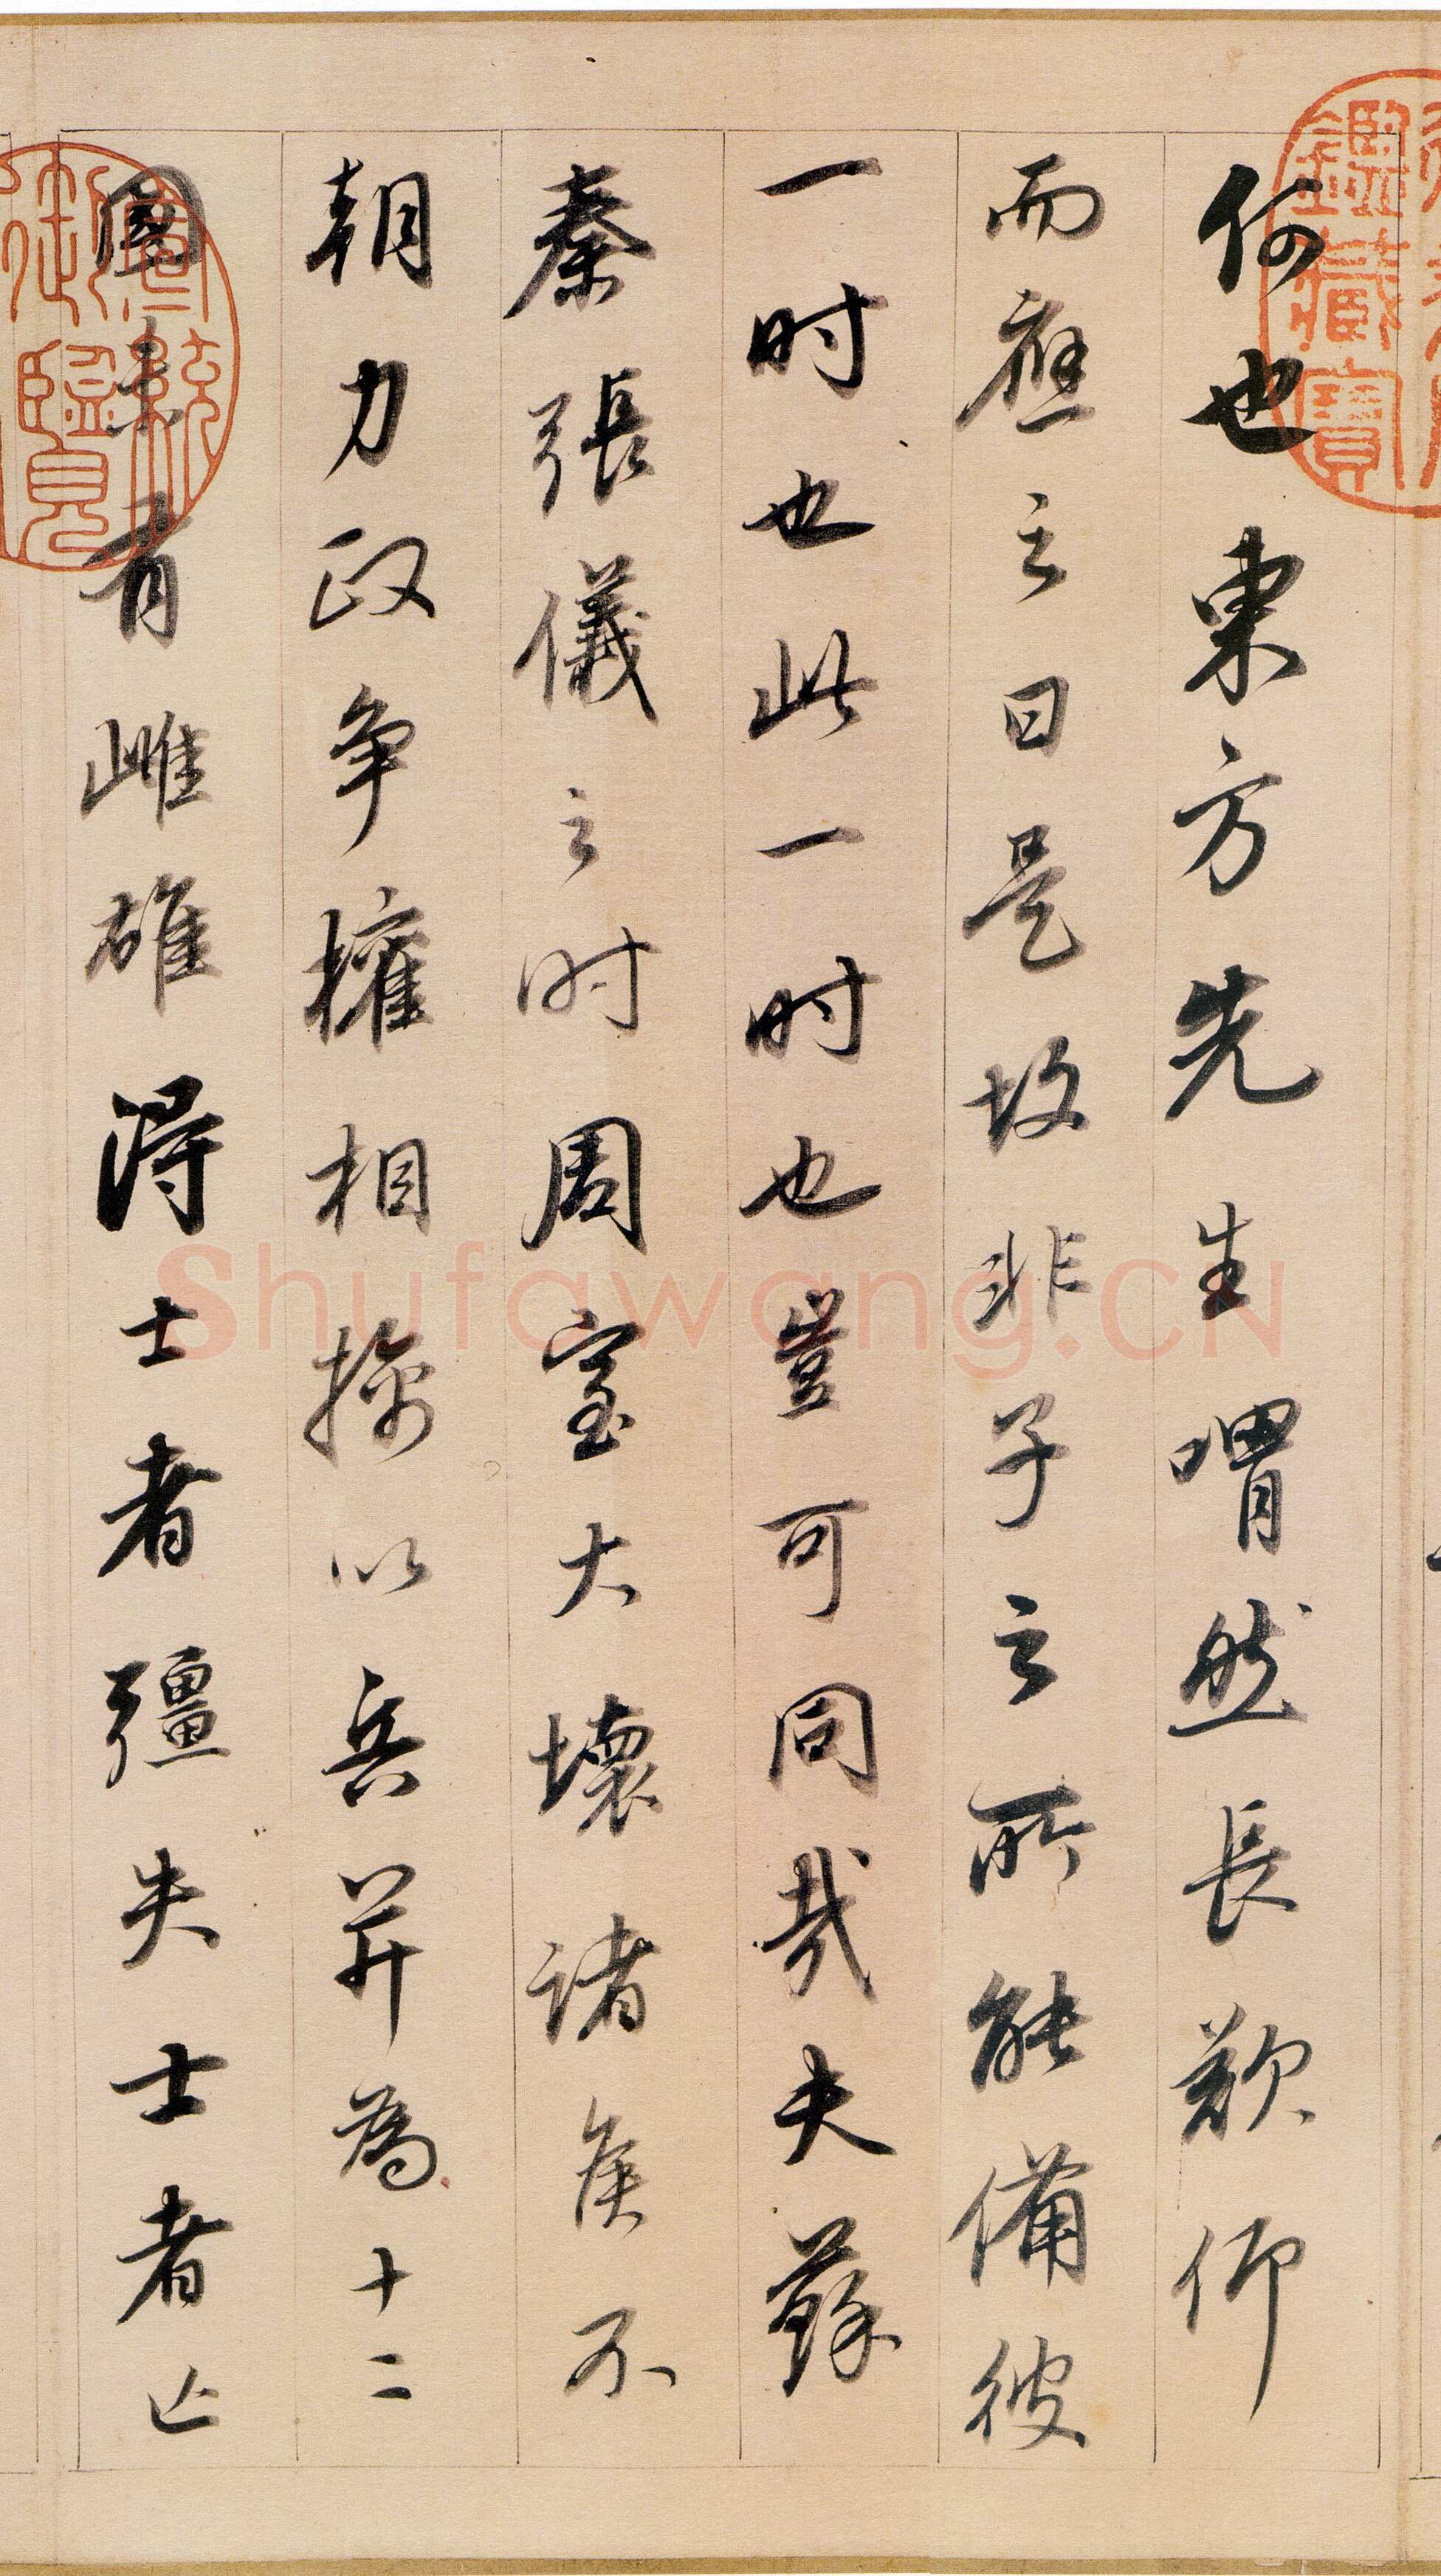 何也東方先生喟然長歎仰
而應之曰是故非子之所能備彼
一时也此一时也豈可同哉夫蘇
秦張儀之时周室大壞諸矦不
朝力政争權相擒以兵并為十二
國未有雌雄得士者彊失士者亡
鑑藏寶
宣統御覽
Shufawang.CN